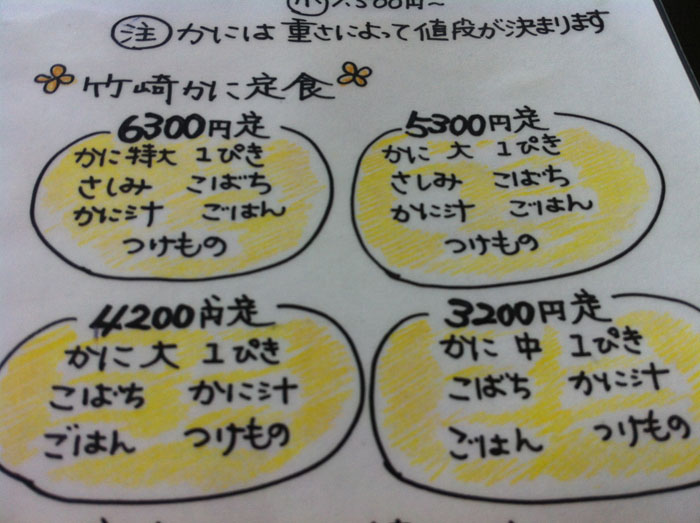 小 1,500円〜
注 かには重さによって値段が決まります
竹崎かに定食
6300円定
かに特大 1ぴき
さしみ こばち
かに汁 ごはん
つけもの
5300円定
かに 大 1ぴき
さしみ こばち
かに汁 ごはん
つけもの
4200円定
かに 大 1ぴき
こばち かに汁
ごはん つけもの
3200円定
かに 中 1ぴき
こばち かに汁
ごはん つけもの